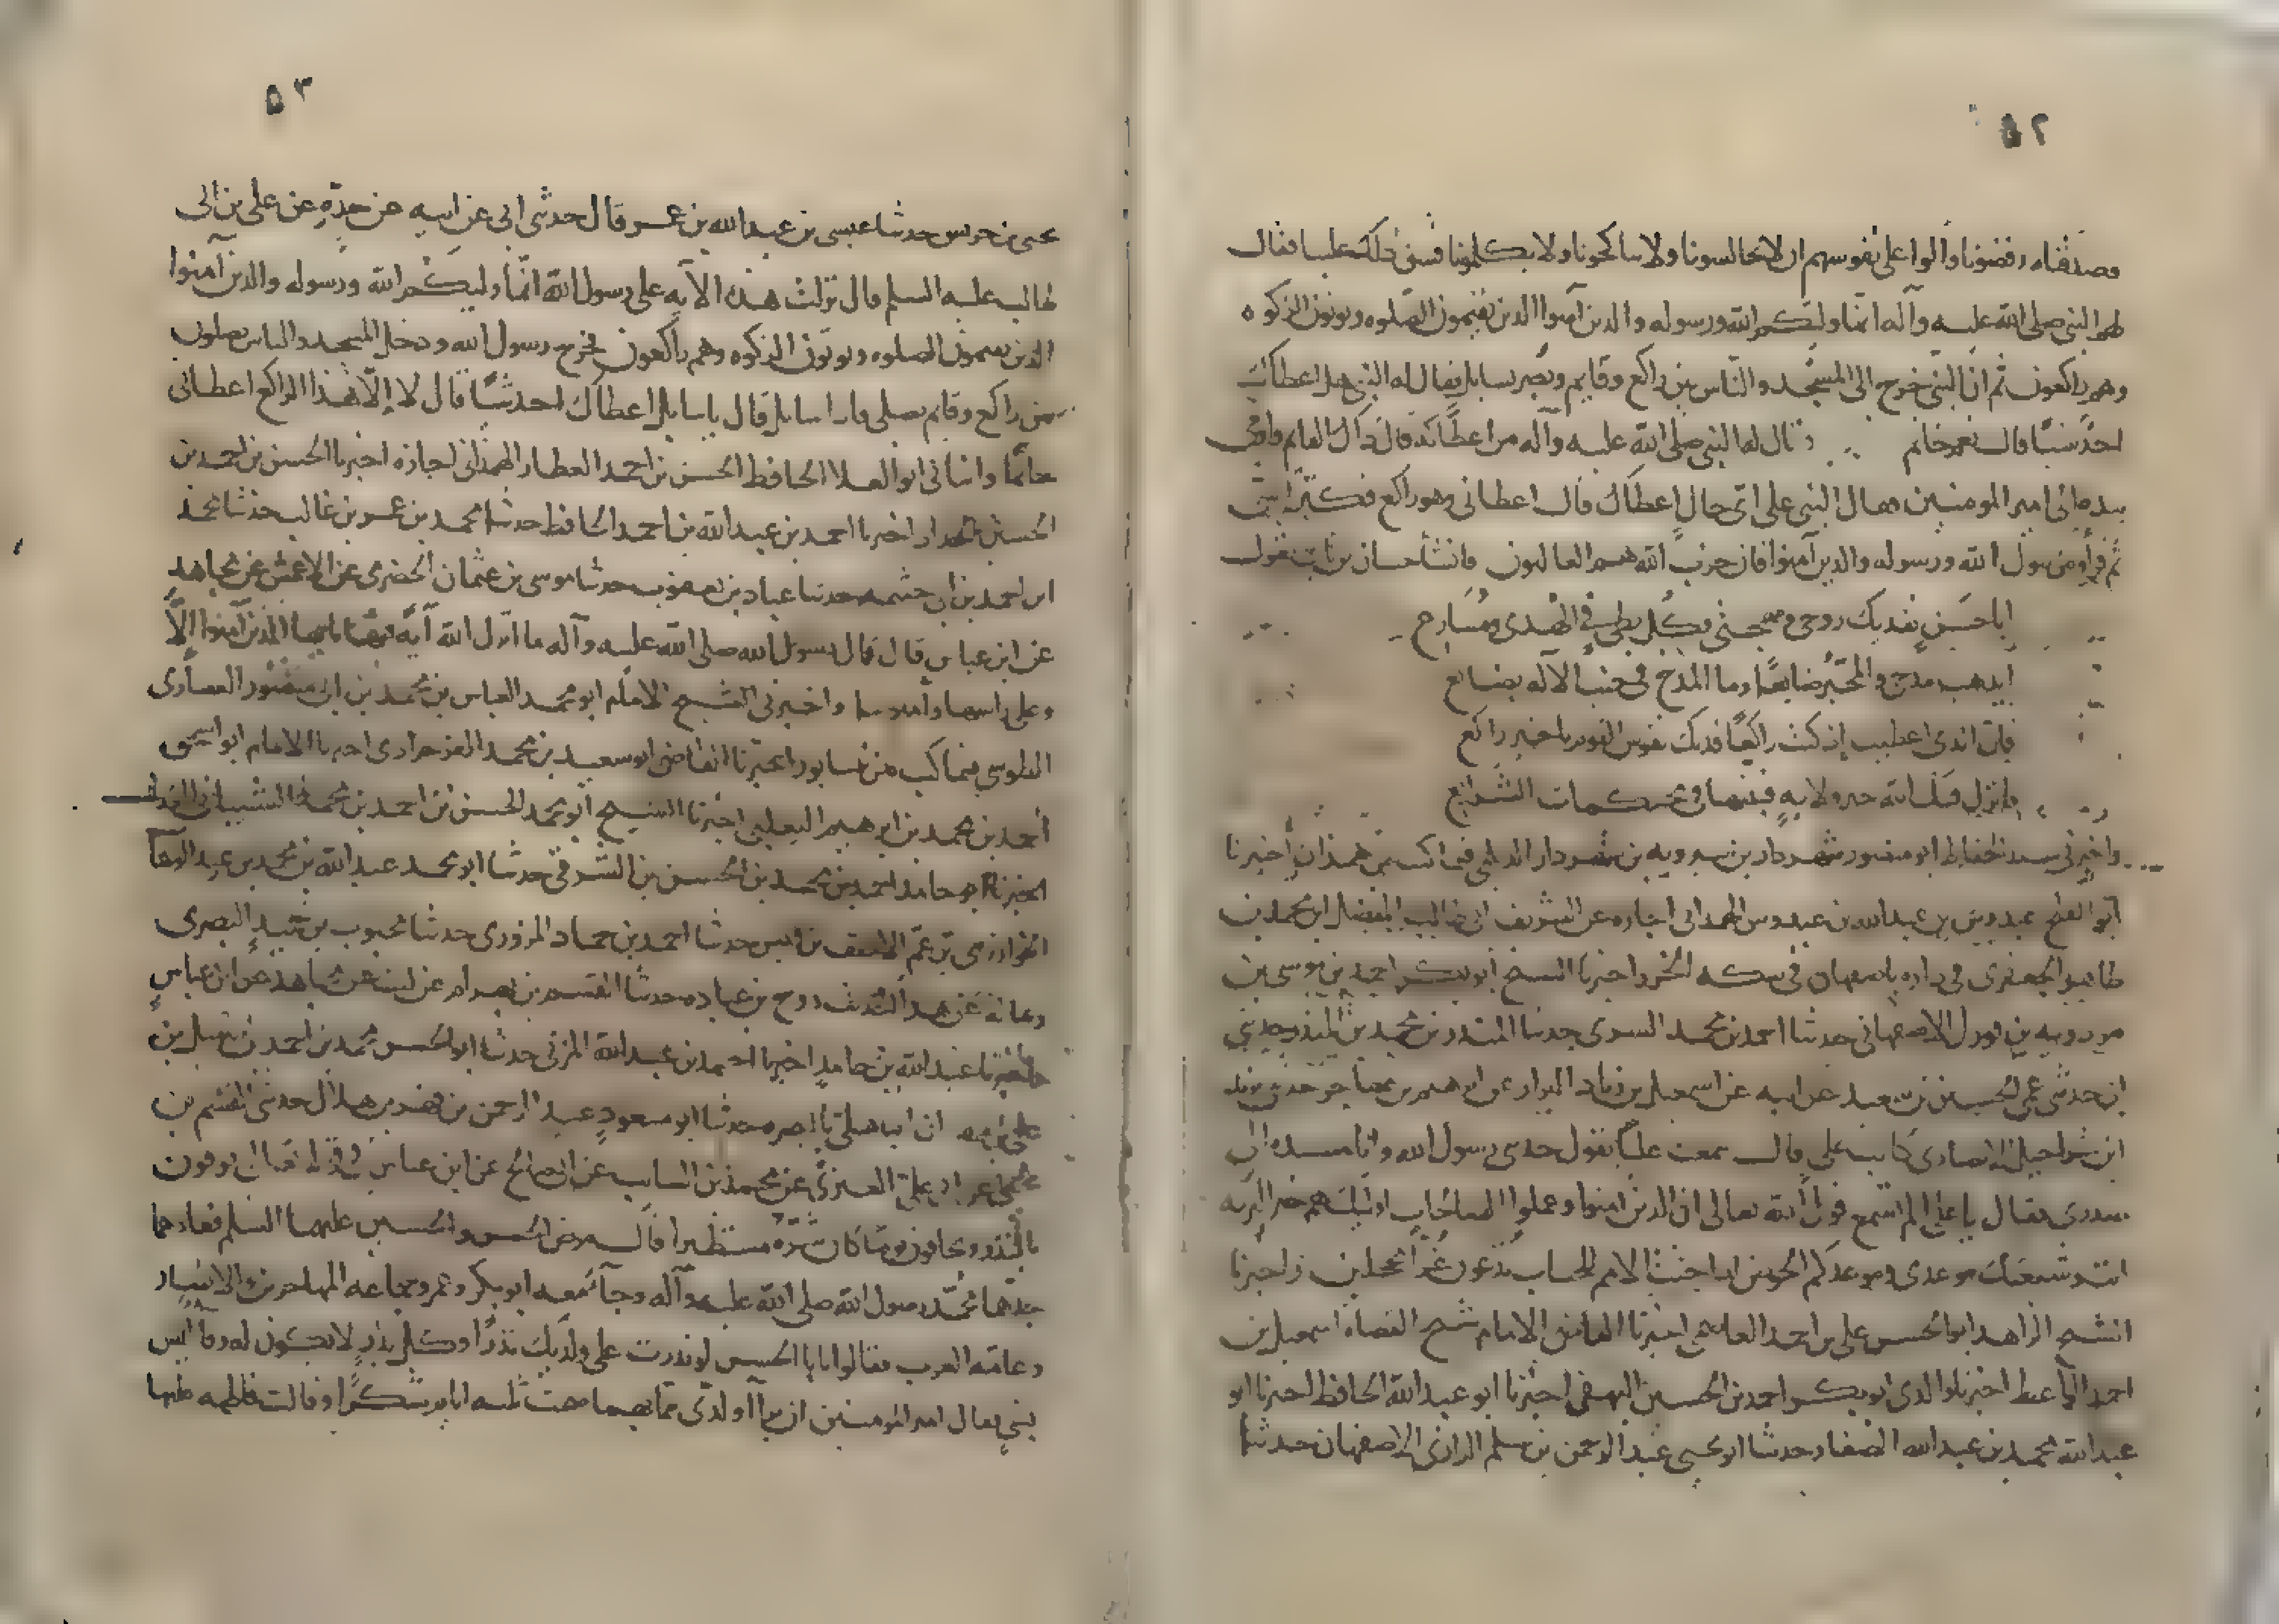 ٥٢
وصدقناه رفضونا وآلوا على نفوسهم ان لا يجالسونا ولا يناكحونا ولا يكلمونا فشق ذلك علينا فقال
لهم النبي صلى الله عليه وآله انما وليكم الله ورسوله والذين آمنوا الذين يقيمون الصلوه ويوتون الزكوه
وهم راكعون ثم ان النبي خرج الى المسجد والناس بين راكع وقايم وبصر بسايل فقال له النبي هل اعطاك
احد شيئا قال نعم خاتم فقال له النبي صلى الله عليه وآله من اعطاكه قال ذاك القايم واومى
بيده الى امير المومنين فقال النبي على اي حال اعطاك قال اعطاني وهو راكع فكبر النبي
ثم قرأ ومن يتول الله ورسوله والذين آمنوا فان حزب الله هم الغالبون فانشأ حسان بن ثابت يقول
ابا حسن تفديك روحي ومهجتي وكل بطي في الهدى ومسارع
ايذهب مدحي والمحبر ضايعا وما المدح في جنب الاله بضايع
فانت الذي اعطيت إذ كنت راكعا فدتك نفوس القوم يا خير راكع
فانزل فيك الله خير ولايه فبينها في محكمات الشرايع
واخبرني سيد الحفاظ ابو منصور شهردار بن شيرويه بن شهردار الديلمي فيما كتب الي من همذان اخبرنا
ابو الفتح عبدوس بن عبدالله بن عبدوس الهمداني اجازه عن الشريف ابي طالب المفضل ابن محمد بن
طاهر الجعفري في داره باصفهان في سكه الخر واخبرنا الشيخ ابو بكر احمد بن موسى بن
مردويه بن فورك الاصفهاني حدثنا احمد بن محمد السري حدثنا المنذر بن محمد بن المنذر حدثني
ابي حدثني عمي الحسين بن سعيد عن ابيه عن اسمعيل بن زياد البزاز عن ابرهيم بن مهاجر حدثني يزيد
ابن شراحيل الانصاري كاتب علي قال سمعت عليا يقول حدثني رسول الله وانا مسنده الى
صدري فقال يا علي الم تسمع قول الله تعالى ان الذين امنوا وعملوا الصالحات اولئك هم خير البريه
انت وشيعتك موعدي وموعدكم الحوض اذا جثت الامم للحساب تدعون غرا محجلين واخبرنا
الشيخ الزاهد ابو الحسن علي بن احمد العاصمي اخبرنا القاضي الامام شيخ القضاه اسمعيل بن
احمد الواعظ اخبرنا والدي ابو بكر احمد بن الحسين البيهقي اخبرنا ابو عبد الله الحافظ اخبرنا ابو
عبدالله محمد بن عبدالله الصفار حدثنا ابو يحيى عبد الرحمن بن سلم الرازي الاصفهان حدثنا
٥٣
يحيى بن حريس حدثنا عيسى بن عبدالله بن عمر قال حدثني ابي عن ابيه عن جده عن علي بن ابي
طالب عليه السلم قال نزلت هذه الآيه على رسول الله انما وليكم الله ورسوله والذين آمنوا
الذين يقيمون الصلوه ويوتون الزكوه وهم راكعون فخرج رسول الله ودخل المسجد والناس يصلون
من راكع وقايم يصلي فاذا سايل قال يا سايل اعطاك احد شيئا قال لا إلا هذا الراكع اعطاني
خاتما وانبأني ابو العلا الحافظ الحسن بن احمد العطار الهمذاني اجازه اخبرنا الحسن بن احمد بن
الحسين الحداد اخبرنا احمد بن عبدالله بن احمد الحافظ حدثنا محمد بن عمر بن غالب حدثنا محمد
ابن احمد بن ابي خثيمه حدثنا عباد بن يعقوب حدثنا موسى بن عثمان الحضرمي عن الاعمش عن مجاهد
عن ابن عباس قال قال رسول الله صلى الله عليه وآله ما انزل الله آية فيها يا ايها الذين آمنوا إلا
وعلي راسها واميرها واخبرني الشيخ الامام ابو محمد العباس بن محمد بن ابي منصور العصاري
الطوسي فيما كتب من نيسابور اخبرنا القاضي ابو سعيد بن محمد الفرخزادي اخبرنا الامام ابو اسحق
أحمد بن محمد بن ابرهيم الثعلبي اخبرنا الشيخ ابو محمد الحسن بن احمد بن محمد الشيباني العدل
اخبرنا ابو حامد احمد بن محمد بن الحسن بن الشرقي حدثنا ابو محمد عبدالله بن محمد بن عبد الوهاب
الخوارزمي بن عم الاحنف بن قيس حدثنا احمد بن حماد المروزي حدثنا محبوب بن حميد البصري
وسأله عن هذا الحديث روح بن عباده حدثنا القسم بن بهرام عن ليث عن مجاهد عن ابن عباس
واخبرنا عبد الله بن حامد اخبرنا احمد بن عبدالله المزني حدثنا ابو الحسن محمد بن احمد بن سهيل بن
علي حدثنا ابو مسعود عبد الرحمن بن فهد بن هلال حدثني القسم بن
يحيى عن ابي علي العنزي عن محمد بن السايب عن ابي صالح عن ابن عباس في قوله تعالى يوفون
بالنذر ويخافون يوما كان شره مستطيرا قال مرض الحسن والحسين عليهما السلم فعادهما
جدهما محمد رسول الله صلى الله عليه وآله وجآ معه ابو بكر وعمر وجماعه المهاجرين والانصار
وعامه العرب فقالوا يابا الحسن لو نذرت على ولديك نذرا وكل نذر لا يكون له وفا ليس
بشي فقال امير المومنين ان برأ ولدي مما بهما صمت ثلثه ايام شكرا وقالت فاطمه عليها